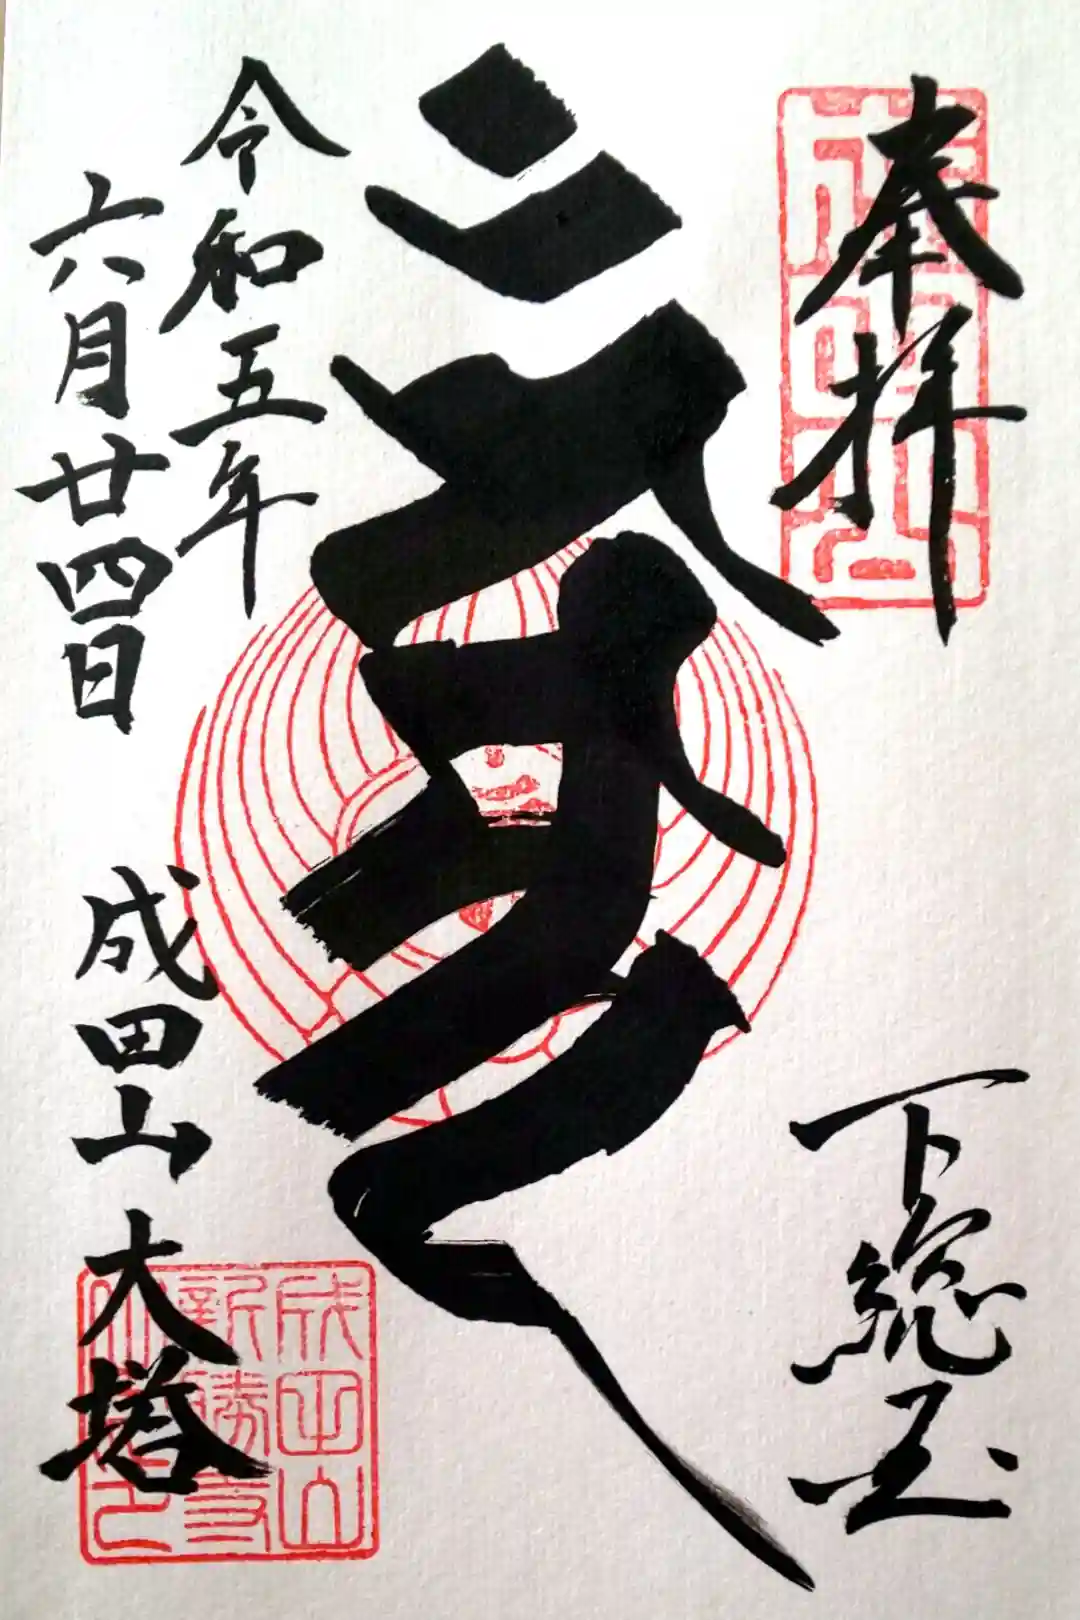 奉拝
成田山
下総国
令和五年
六月廿四日
成田山 大塔
成田山
新勝寺